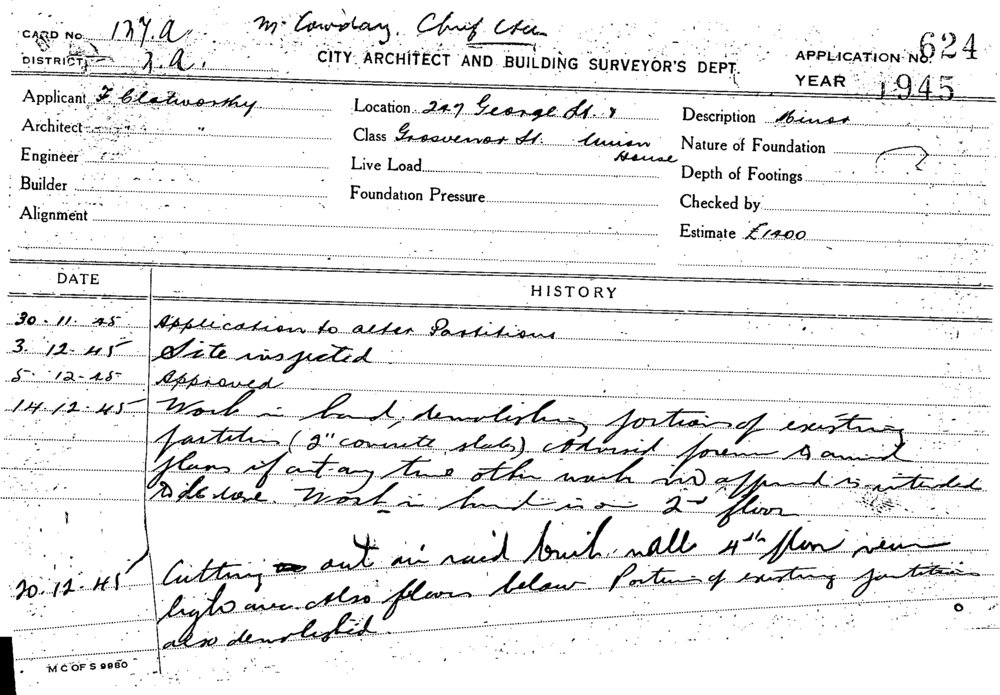 CARD No. 127.A. McCowday. Chief
DISTRICT 2.A. CITY ARCHITECT AND BUILDING SURVEYOR'S DEPT. APPLICATION No. 624
YEAR 1945
Applicant F Clatworthy Location 247 George St. & Description Minor
Architect " Class Grosvenor St. Union House Nature of Foundation
Engineer Live Load Depth of Footings
Builder Foundation Pressure Checked by
Alignment Estimate £1200
DATE HISTORY
30.11.45 Application to alter Partitions
3.12.45 Site inspected
5.12.45 Approved
14.12.45 Work in hand, demolishing portion of existing
partition (2" concrete slabs) Advised foreman to amend
plans if at any time other work not approved is intended
to be done. Work in hand is on 2nd floor
20.12.45 Cutting out in brick walls 4th floor near
light area. Also floors below. Portion of existing partitions
also demolished.
M C OF S 9980